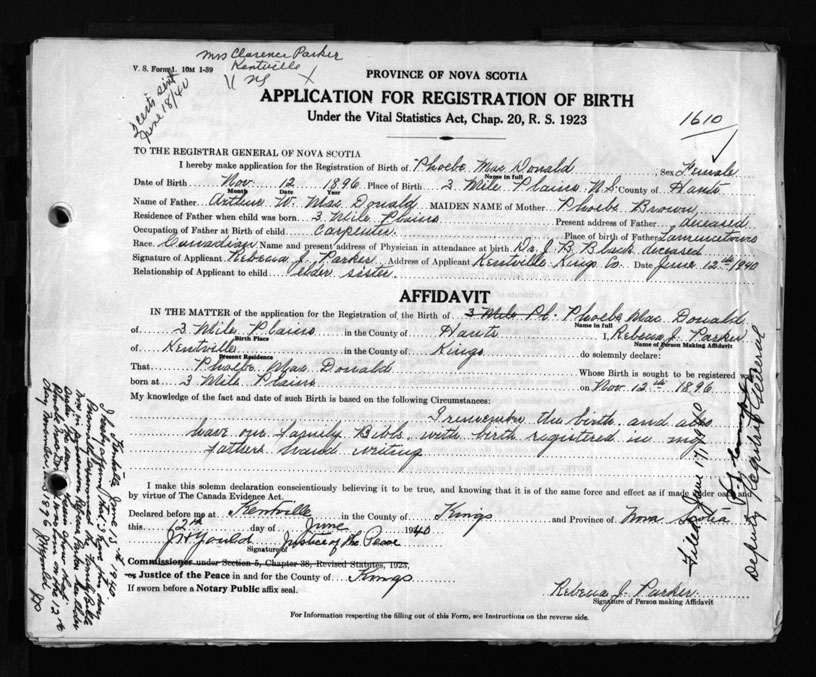 Mrs Clarence Parker
Kentville
NS
V. S. Form 1. 10M 1-39
June 18/40
PROVINCE OF NOVA SCOTIA
APPLICATION FOR REGISTRATION OF BIRTH
Under the Vital Statistics Act, Chap. 20, R. S. 1923
1610
TO THE REGISTRAR GENERAL OF NOVA SCOTIA
I hereby make application for the Registration of Birth of Phoebe Mac Donald Sex Female
Name in full
Date of Birth Nov. 12 1896 Place of Birth 3 Mile Plains N.S. County of Hants
Month Date Year
Name of Father Arthur W. Mac Donald MAIDEN NAME of Mother Phoebe Brown
Residence of Father when child was born 3 Mile Plains Present address of Father deceased
Occupation of Father at Birth of Child Carpenter Place of birth of Father
Race Canadian Name and present address of Physician in attendance at birth Dr. J. B. Black deceased
Signature of Applicant Rebecca J. Parker Address of Applicant Kentville Kings Co. Date June 12th 1940
Relationship of Applicant to child elder sister
AFFIDAVIT
IN THE MATTER of the application for the Registration of the Birth of 3 Mile Pl. Phoebe Mac Donald
Name in full
of 3 Mile Plains in the County of Hants I, Rebecca J. Parker
Birth Place Name of Person Making Affidavit
of Kentville in the County of Kings do solemnly declare:
Present Residence
That Phoebe Mac Donald Whose Birth is sought to be registered was
born at 3 Mile Plains on Nov 12th 1896
My knowledge of the fact and date of such Birth is based on the following Circumstances:
I remember the birth and also
have our Family Bible with birth registered in my
fathers hand writing
I make this solemn declaration conscientiously believing it to be true, and knowing that it is of the same force and effect as if made under oath and
by virtue of The Canada Evidence Act.
Declared before me at Kentville in the County of Kings and Province of Nova Scotia
this 12th day of June 1940
Signature of Justice of the Peace
Commissioner under Section 5, Chapter 38, Revised Statutes, 1923,
or Justice of the Peace in and for the County of Kings
If sworn before a Notary Public affix seal.
Rebecca J. Parker
Signature of Person making Affidavit
For Information respecting the filling out of this Form, see Instructions on the reverse side.
Filed June 17, 1940
Deputy Registrar General
Kentville June 13th 1940